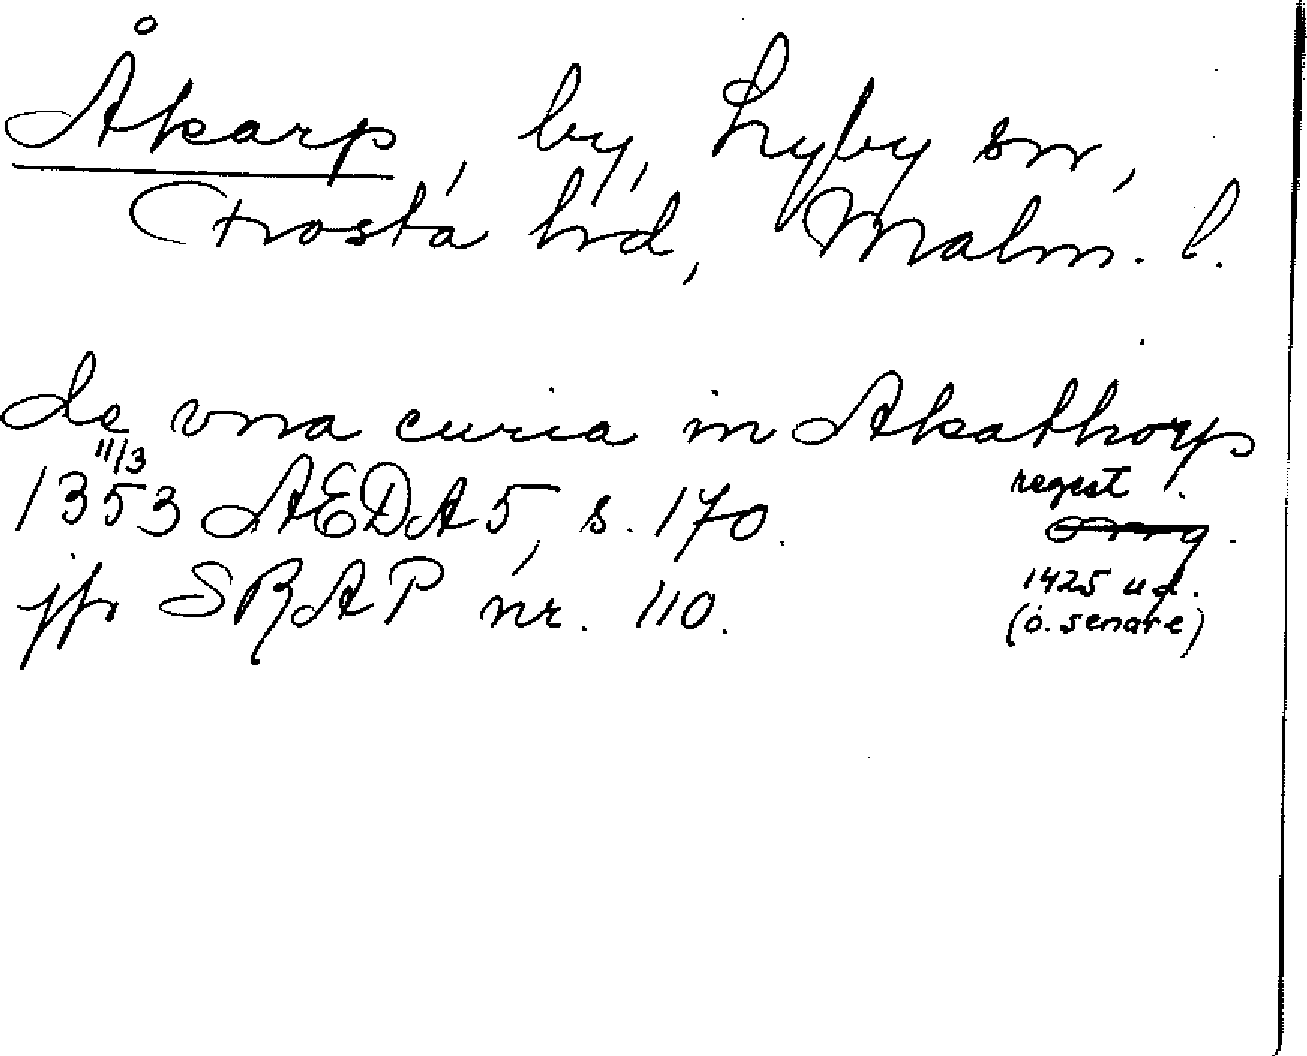 Åkarp, by, Lyby sn,
Frosta hd, Malm. l.
de vna curia in Akathorp
11/3
1353 AEDA 5, s. 170. regest.
jfr SRAP nr. 110. 1425 u.d.
(o. senare)